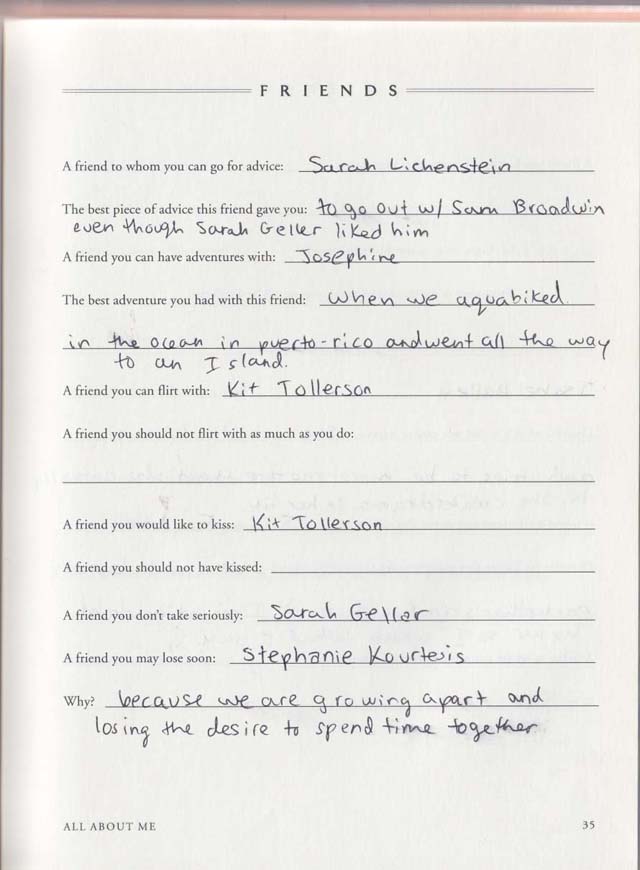 FRIENDS
A friend to whom you can go for advice: Sarah Lichenstein
The best piece of advice this friend gave you: to go out w/ Sam Broadwin
even though Sarah Geller liked him
A friend you can have adventures with: Josephine
The best adventure you had with this friend: when we aquabiked
in the ocean in puerto-rico and went all the way
to an Island.
A friend you can flirt with: Kit Tollerson
A friend you should not flirt with as much as you do:
A friend you would like to kiss: Kit Tollerson
A friend you should not have kissed:
A friend you don't take seriously: Sarah Geller
A friend you may lose soon: Stephanie Kourtesis
Why? because we are growing apart and
losing the desire to spend time together
ALL ABOUT ME 35